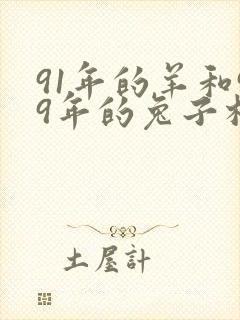 91年的羊和9
9年的兔子札
土屋計